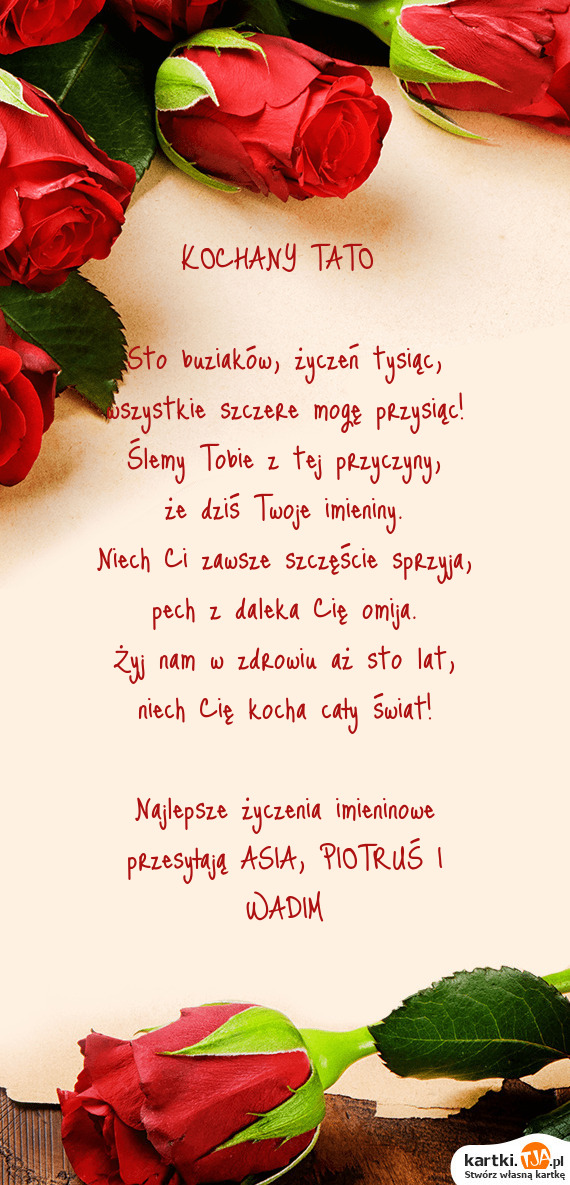 KOCHANY TATO
Sto buziaków, życzeń tysiąc,
wszystkie szczere mogę przysiąc!
Ślemy Tobie z tej przyczyny,
że dziś Twoje imieniny.
Niech Ci zawsze szczęście sprzyja,
pech z daleka Cię omija.
Żyj nam w zdrowiu aż sto lat,
niech Cię kocha cały świat!
Najlepsze życzenia imieninowe
przesyłają ASIA, PIOTRUŚ I
WADIM
kartki.TJA.pl
Stwórz własną kartkę